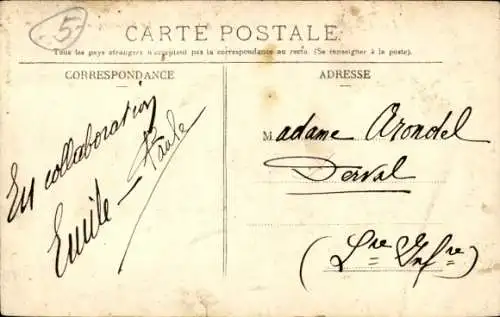 5
CARTE POSTALE
Tous les pays étrangers n'acceptent pas la correspondance au recto. (Se renseigner à la poste).
CORRESPONDANCE
ADRESSE
En collaboration
Emile – Paule
Madame Arondel
Derval
(Lre Infre)